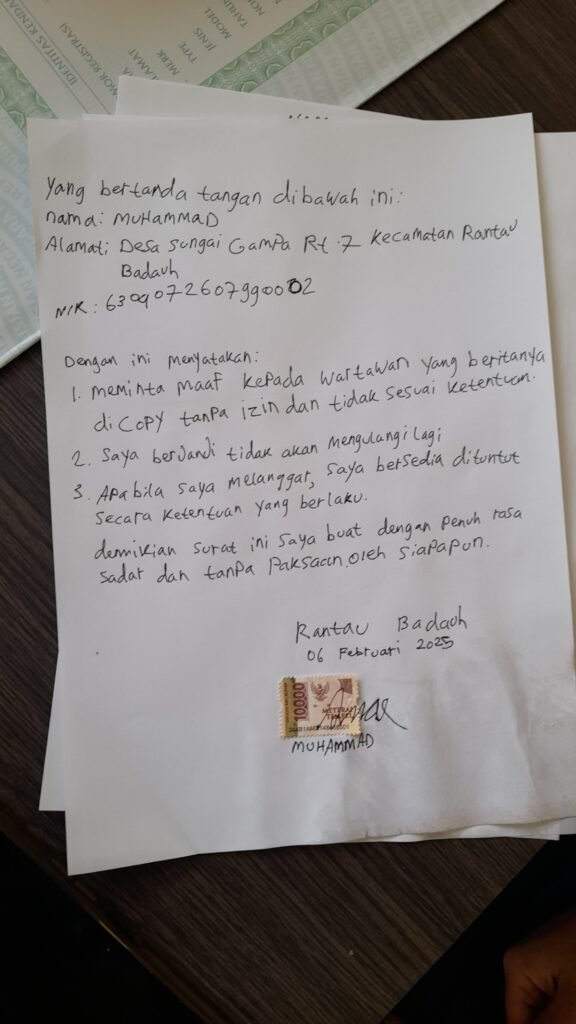 IDENTITAS KENDA
MOR REGISTRASI
LAMAT
MERK
TYPE
JENIS
MODEL
TAHUN
Yang bertanda tangan dibawah ini:
nama: MUHAMMAD
Alamat: Desa sungai Gampa Rt.7 Kecamatan Rantau
Badauh
NIK: 6309072607990002
Dengan ini menyatakan:
1. meminta maaf kepada wartawan yang beritanya
di COPY tanpa izin dan tidak sesuai ketentuan.
2. Saya berjandi tidak akan mengulangi lagi
3. APabila saya melanggar, saya bersedia dituntut
secara ketentuan yang berlaku.
demikian surat ini saya buat dengan penuh rasa
sadar dan tanpa Paksaan oleh siapapun.
Rantau Badauh
06 Februari 2025
10000
METERAI
TEMPEL
MUHAMMAD